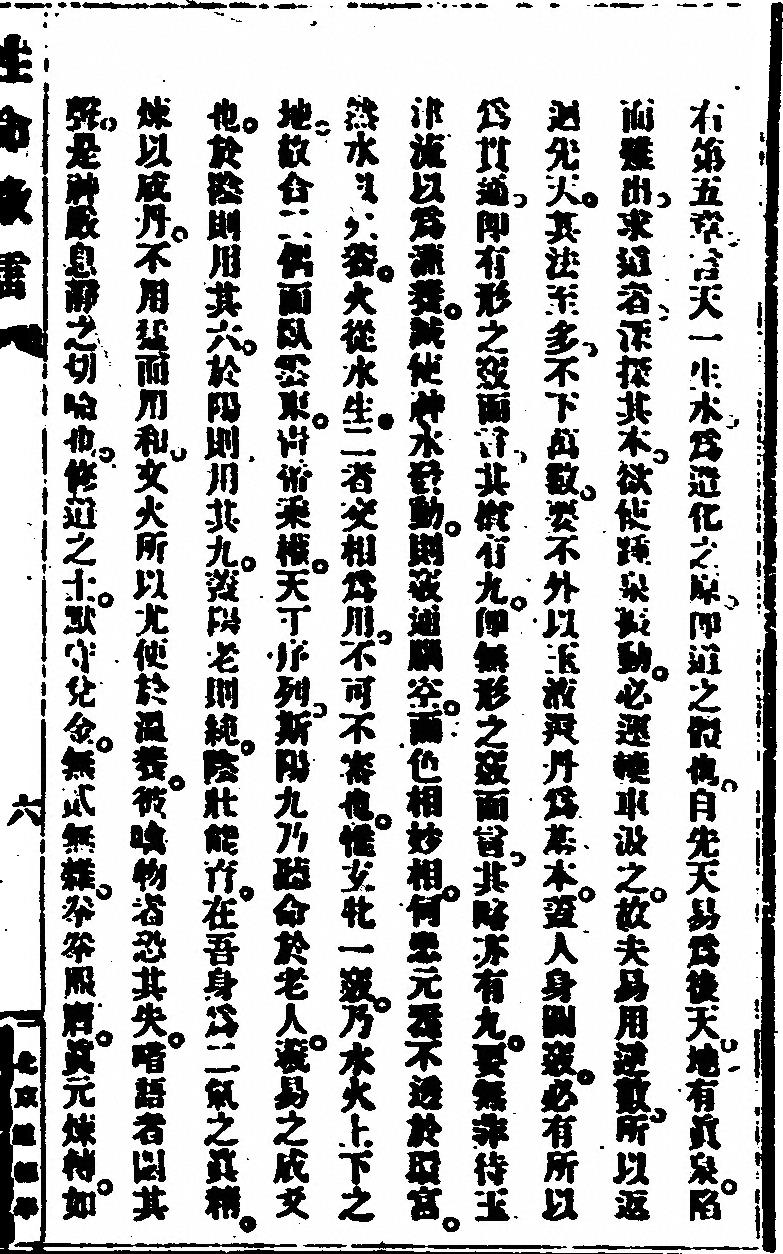 右第五章言天一生水為造化之原即道之體也自先天易為後天地有眞泉陷
而難出求道者深探其本欲使踵泉振動必運轆車汲之故夫易用逆數所以返
迴先天其法至多不下萬數要不外以玉液還丹為基本蓋人身關竅必有所以
為貫通即有形之竅而言其機有九即無形之竅而言其略亦有九要無非待玉
津流以為灌養誠使神水發動則竅通腦空而色相妙相何患元靈不透於環宮
然水以火蒸火從水生二者交相為用不可不審也惟玄牝一竅乃水火上下之
地故合二偶而臥雲東青術乘機天丁序列斯陽九乃聽命於老人羲易之成爻
也於陰則用其六於陽則用其九蓋陽老則純陰壯能育在吾身為二氣之眞精
煉以成丹不用猛而用和文火所以尤使於溫養彼噏物者恐其失嗜語者囚其
聲是神嚴息靜之切喻也修道之士默守兌金無貳無雜夲夲熙膺眞元煉轉如
性命微言
六
北京道德學